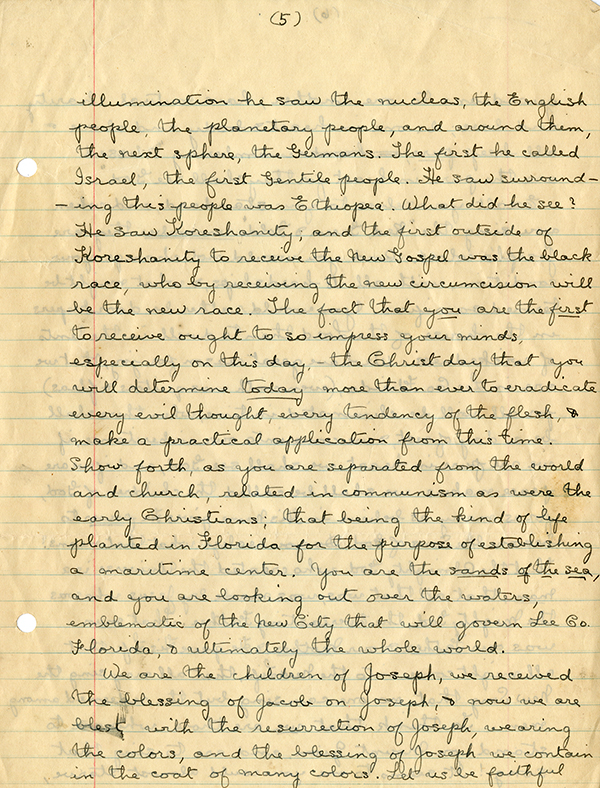 (5)
illumination he saw the nucleas, the English
people, the planetary people, and around them,
the next sphere, the Germans. The first he called
Israel, the first Gentile people. He saw surround-
-ing this people was Ethiopea. What did he see?
He saw Koreshanity; and the first outside of
Koreshanity to receive the New Gospel was the black
race, who by receiving the new circumcision will
be the new race. The fact that you are the first
to receive ought to so impress your minds,
especially on this day, - the Christ day that you
will determine today more than ever to eradicate
every evil thought, every tendency of the flesh, &
make a practical application from this time.
Show forth, as you are separated from the world
and church, related in communism as were the
early Christians; that being the kind of life
planted in Florida for the purpose of establishing
a maritime center. You are the sands of the sea,
and you are looking out over the waters,
emblematic of the New City that will govern Lee Co.
Florida, & ultimately the whole world.
We are the children of Joseph, we received
the blessing of Jacob on Joseph, & now we are
blest with the resurrection of Joseph, wearing
the colors, and the blessing of Joseph we contain
in the coat of many colors. Let us be faithful